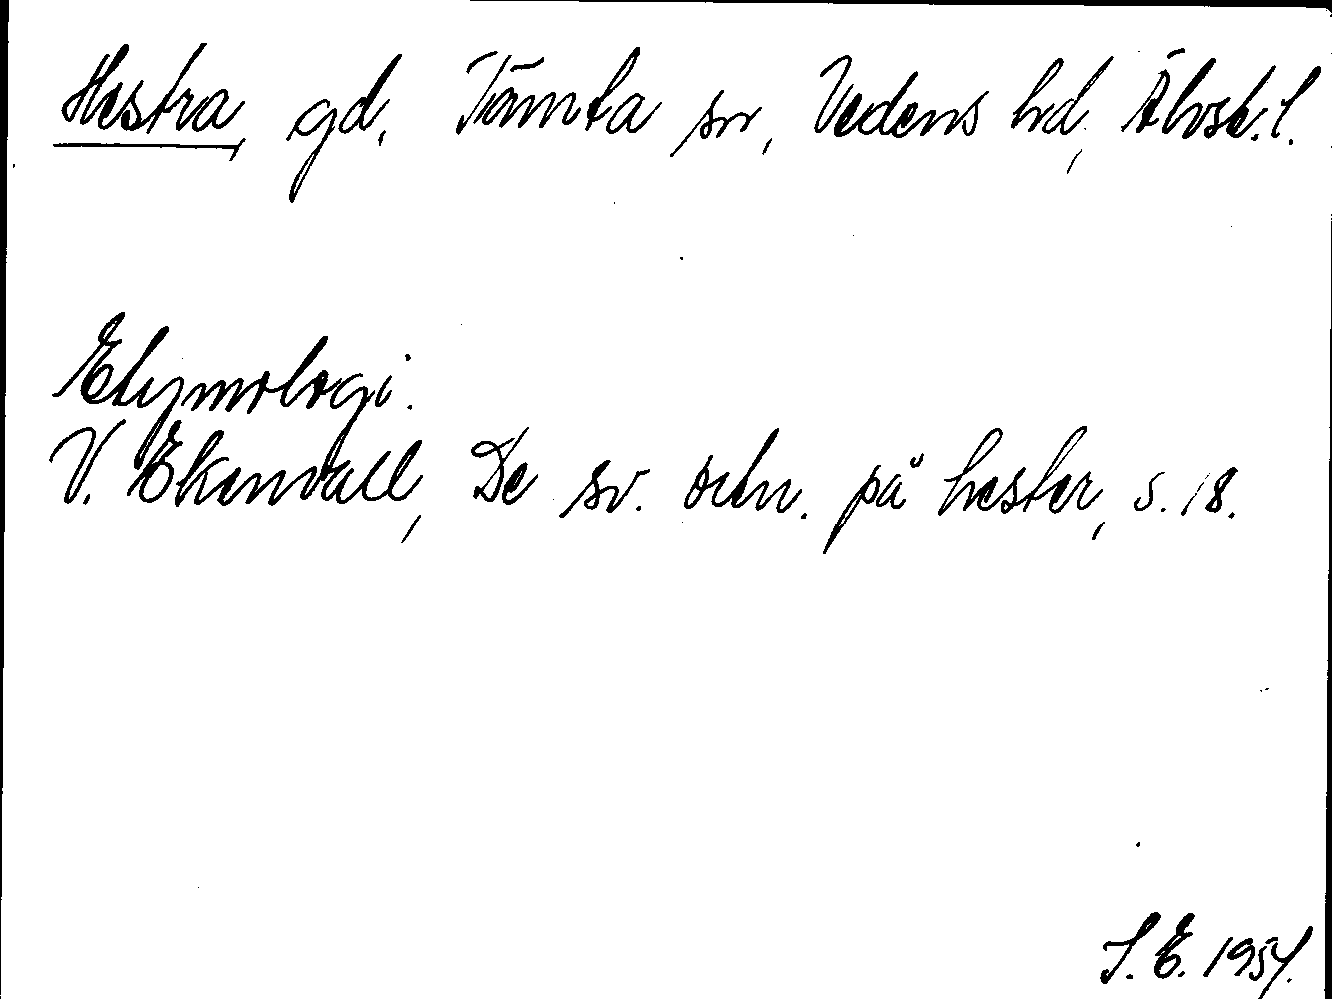 Hestra, gd, Tämta sn, Vedens hd, Älvsb. l.
Etymologi.
V. Ekenvall, De sv. ortn. på hester, s. 18.
S. E. 1954.